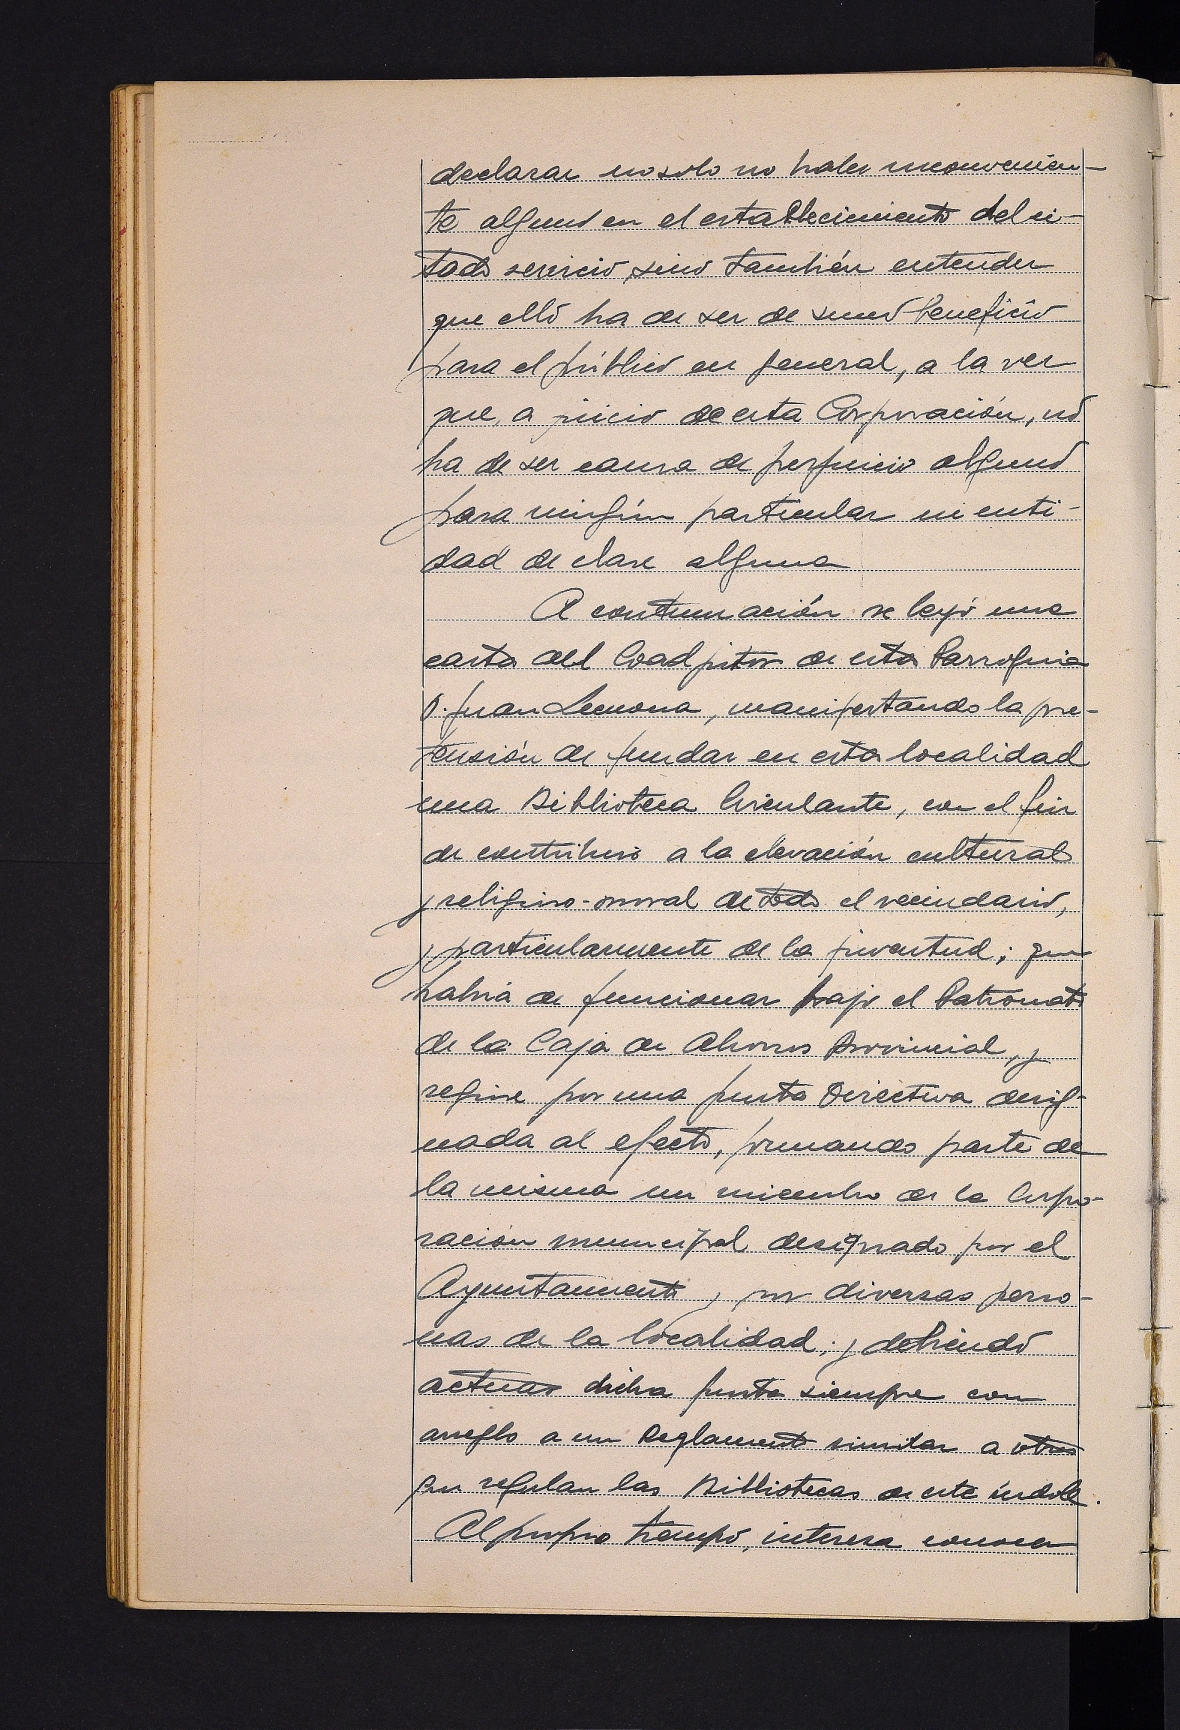 declarar no solo no haber inconvenien-
te alguno en el establecimiento del ci-
tado servicio, sino también entender
que ello ha de ser de sumo beneficio
para el público en general, a la vez
que, a juicio de esta Corporación, no
ha de ser causa de perjuicio alguno
para ningún particular ni enti-
dad de clase alguna
A continuación se leyó una
carta del Coadjutor de esta Parroquia
D. Juan Lecuona, manifestando la pre-
tensión de fundar en esta localidad
una Biblioteca Circulante, con el fin
de contribuir a la elevación cultural
y religioso-moral de todo el vecindario,
y particularmente de la juventud; que
habria de funcionar bajo el Patronato
de la Caja de Ahorros Provincial, y
regirse por una Junta Directiva desig-
nada al efecto, formando parte de
la misma un miembro de la Corpo-
ración municipal designado por el
Ayuntamiento y por diversas perso-
nas de la localidad; y debiendo
actuar dicha Junta siempre con
arreglo a un Reglamento similar a otros
que regulan las Bibliotecas de este indole.
Al propio tiempo, interesa conocer